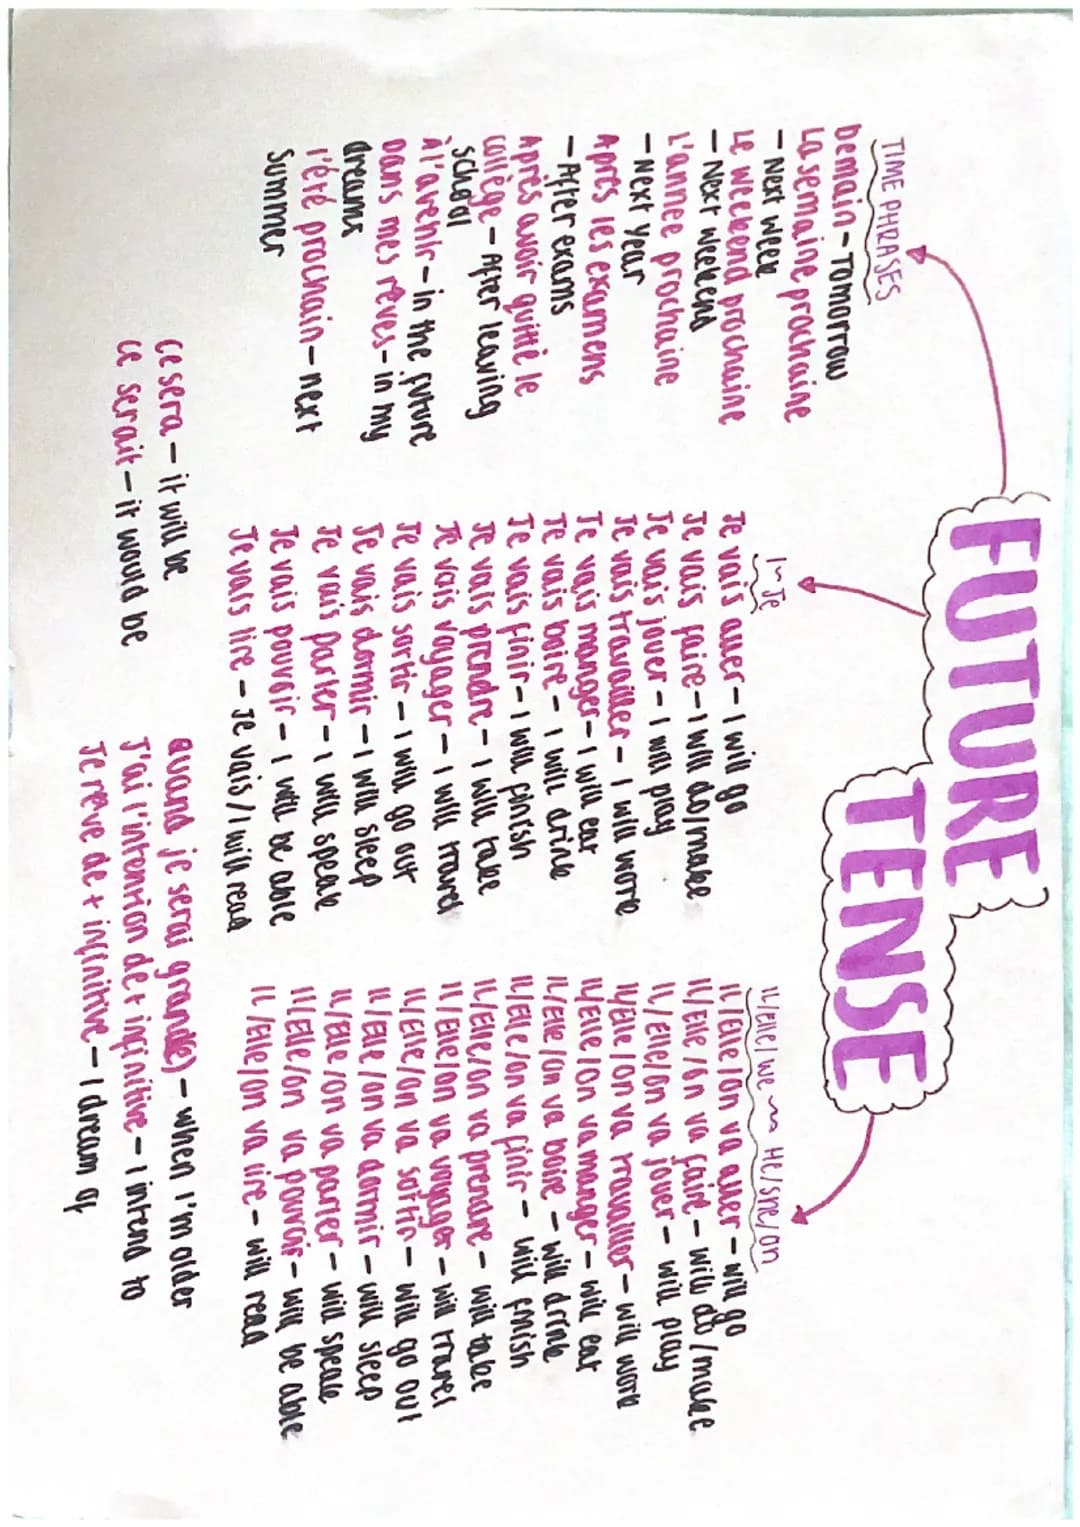 FUTURE
TENSE
TIME PHRASES
Demain - Tomorrow
La semaine prochaine
- Next week
Le weekend prochaine
- Next weekend
L'annee prochaine
- Next year
Après les examens
- After exams
Après avoir quitté le
collège - After leaving
school
À l'avenir - in the future
Dans mes rêves - in my
dreams
l'été prochain - next
summer
I ~ Je
Je vais aller - I will go
Je vais faire - I will do/make
Je vais jouer - I will play
Je vais travailler - I will work
Je vais manger - I will eat
Je vais boire - I will drink
Je vais finir - I will finish
Je vais prendre - I will take
Je vais voyager - I will travel
Je vais sortir - I will go out
Je vais dormir - I will sleep
Je vais parler - I will speak
Je vais pouvoir - I will be able
Je vais lire - Je vais/I will read
IL/Elle/we ~ He/she/on
IL/Elle/on va aller - will go
IL/Elle/on va faire - will do/make
IL/Elle/on va jouer - will play
IL/Elle/on va travailler - will work
IL/Elle/on va manger - will eat
IL/Elle/on va boire - will drink
IL/Elle/on va finir - will finish
IL/Elle/on va prendre - will take
IL/Elle/on va voyager - will travel
IL/Elle/on va sortir - will go out
IL/Elle/on va dormir - will sleep
IL/Elle/on va parler - will speak
IL/Elle/on va pouvoir - will be able
IL/Elle/on va lire - will read
Ce sera - it will be
Ce serait - it would be
Quand je serai grand(e) - when I'm older
J'ai l'intention de + infinitive - I intend to
Je rêve de + infinitive - I dream of